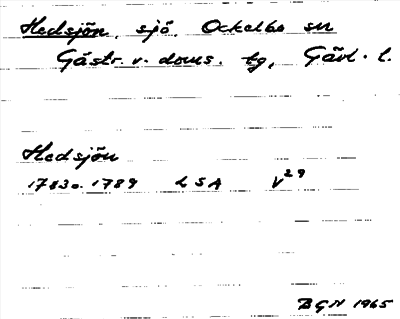 Hedsjön, sjö, Ockelbo sn
Gästr. v. doms. tg, Gävl. l.
Hedsjön
1783 o. 1789 LSA V29
BGN 1965